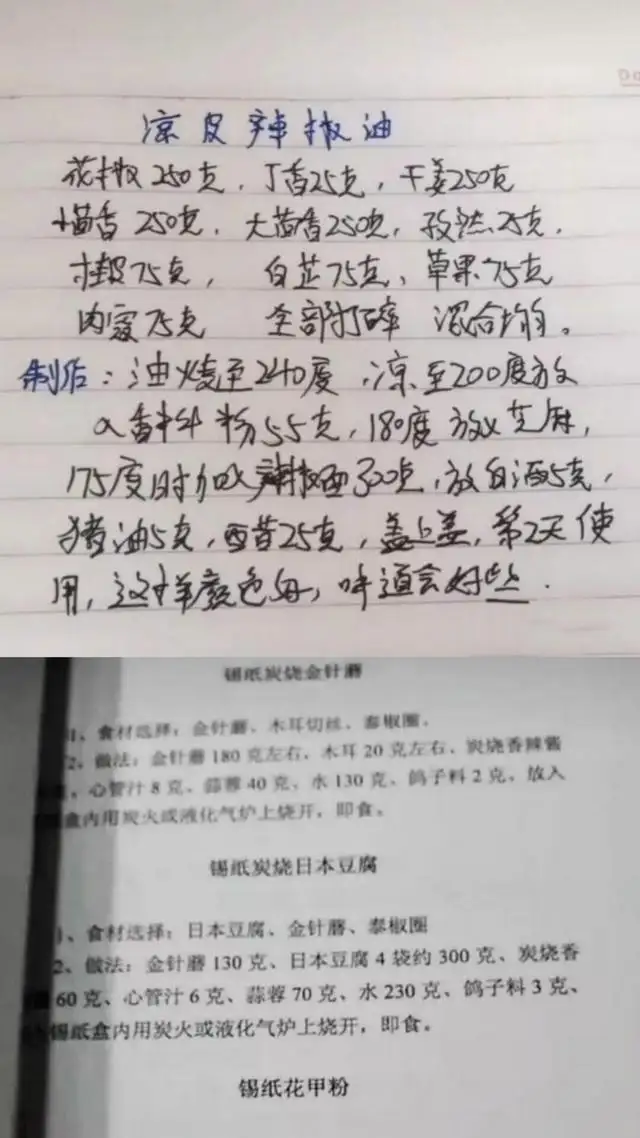 凉皮辣椒油
花椒250克，丁香25克，干姜250克
小茴香250克，大茴香250克，孜然25克，
桂皮75克，白芷75克、草果75克
肉寇75克 全部打碎 混合均匀。
制作：油烧至240度，凉至200度放
入香料粉55克，180度放入芝麻，
175度时加入辣椒面300克，放白酒5克，
猪油5克，西昔25克，盖上盖，第2天使
用，这样颜色好，味道会好些．
锡纸炭烧金针蘑
1、食材选择：金针蘑、木耳切丝、泰椒圈。
2、做法：金针蘑180克左右，木耳20克左右、炭烧香辣酱
心管汁8克、蒜蓉40克、水130克、鸽子料2克，放入
盒内用炭火或液化气炉上烧开，即食。
锡纸炭烧日本豆腐
1、食材选择：日本豆腐、金针蘑、泰椒圈
2、做法：金针蘑130克、日本豆腐4袋约300克、炭烧香
60克、心管汁6克、蒜蓉70克、水230克、鸽子料3克、
锡纸盒内用炭火或液化气炉上烧开，即食。
锡纸花甲粉